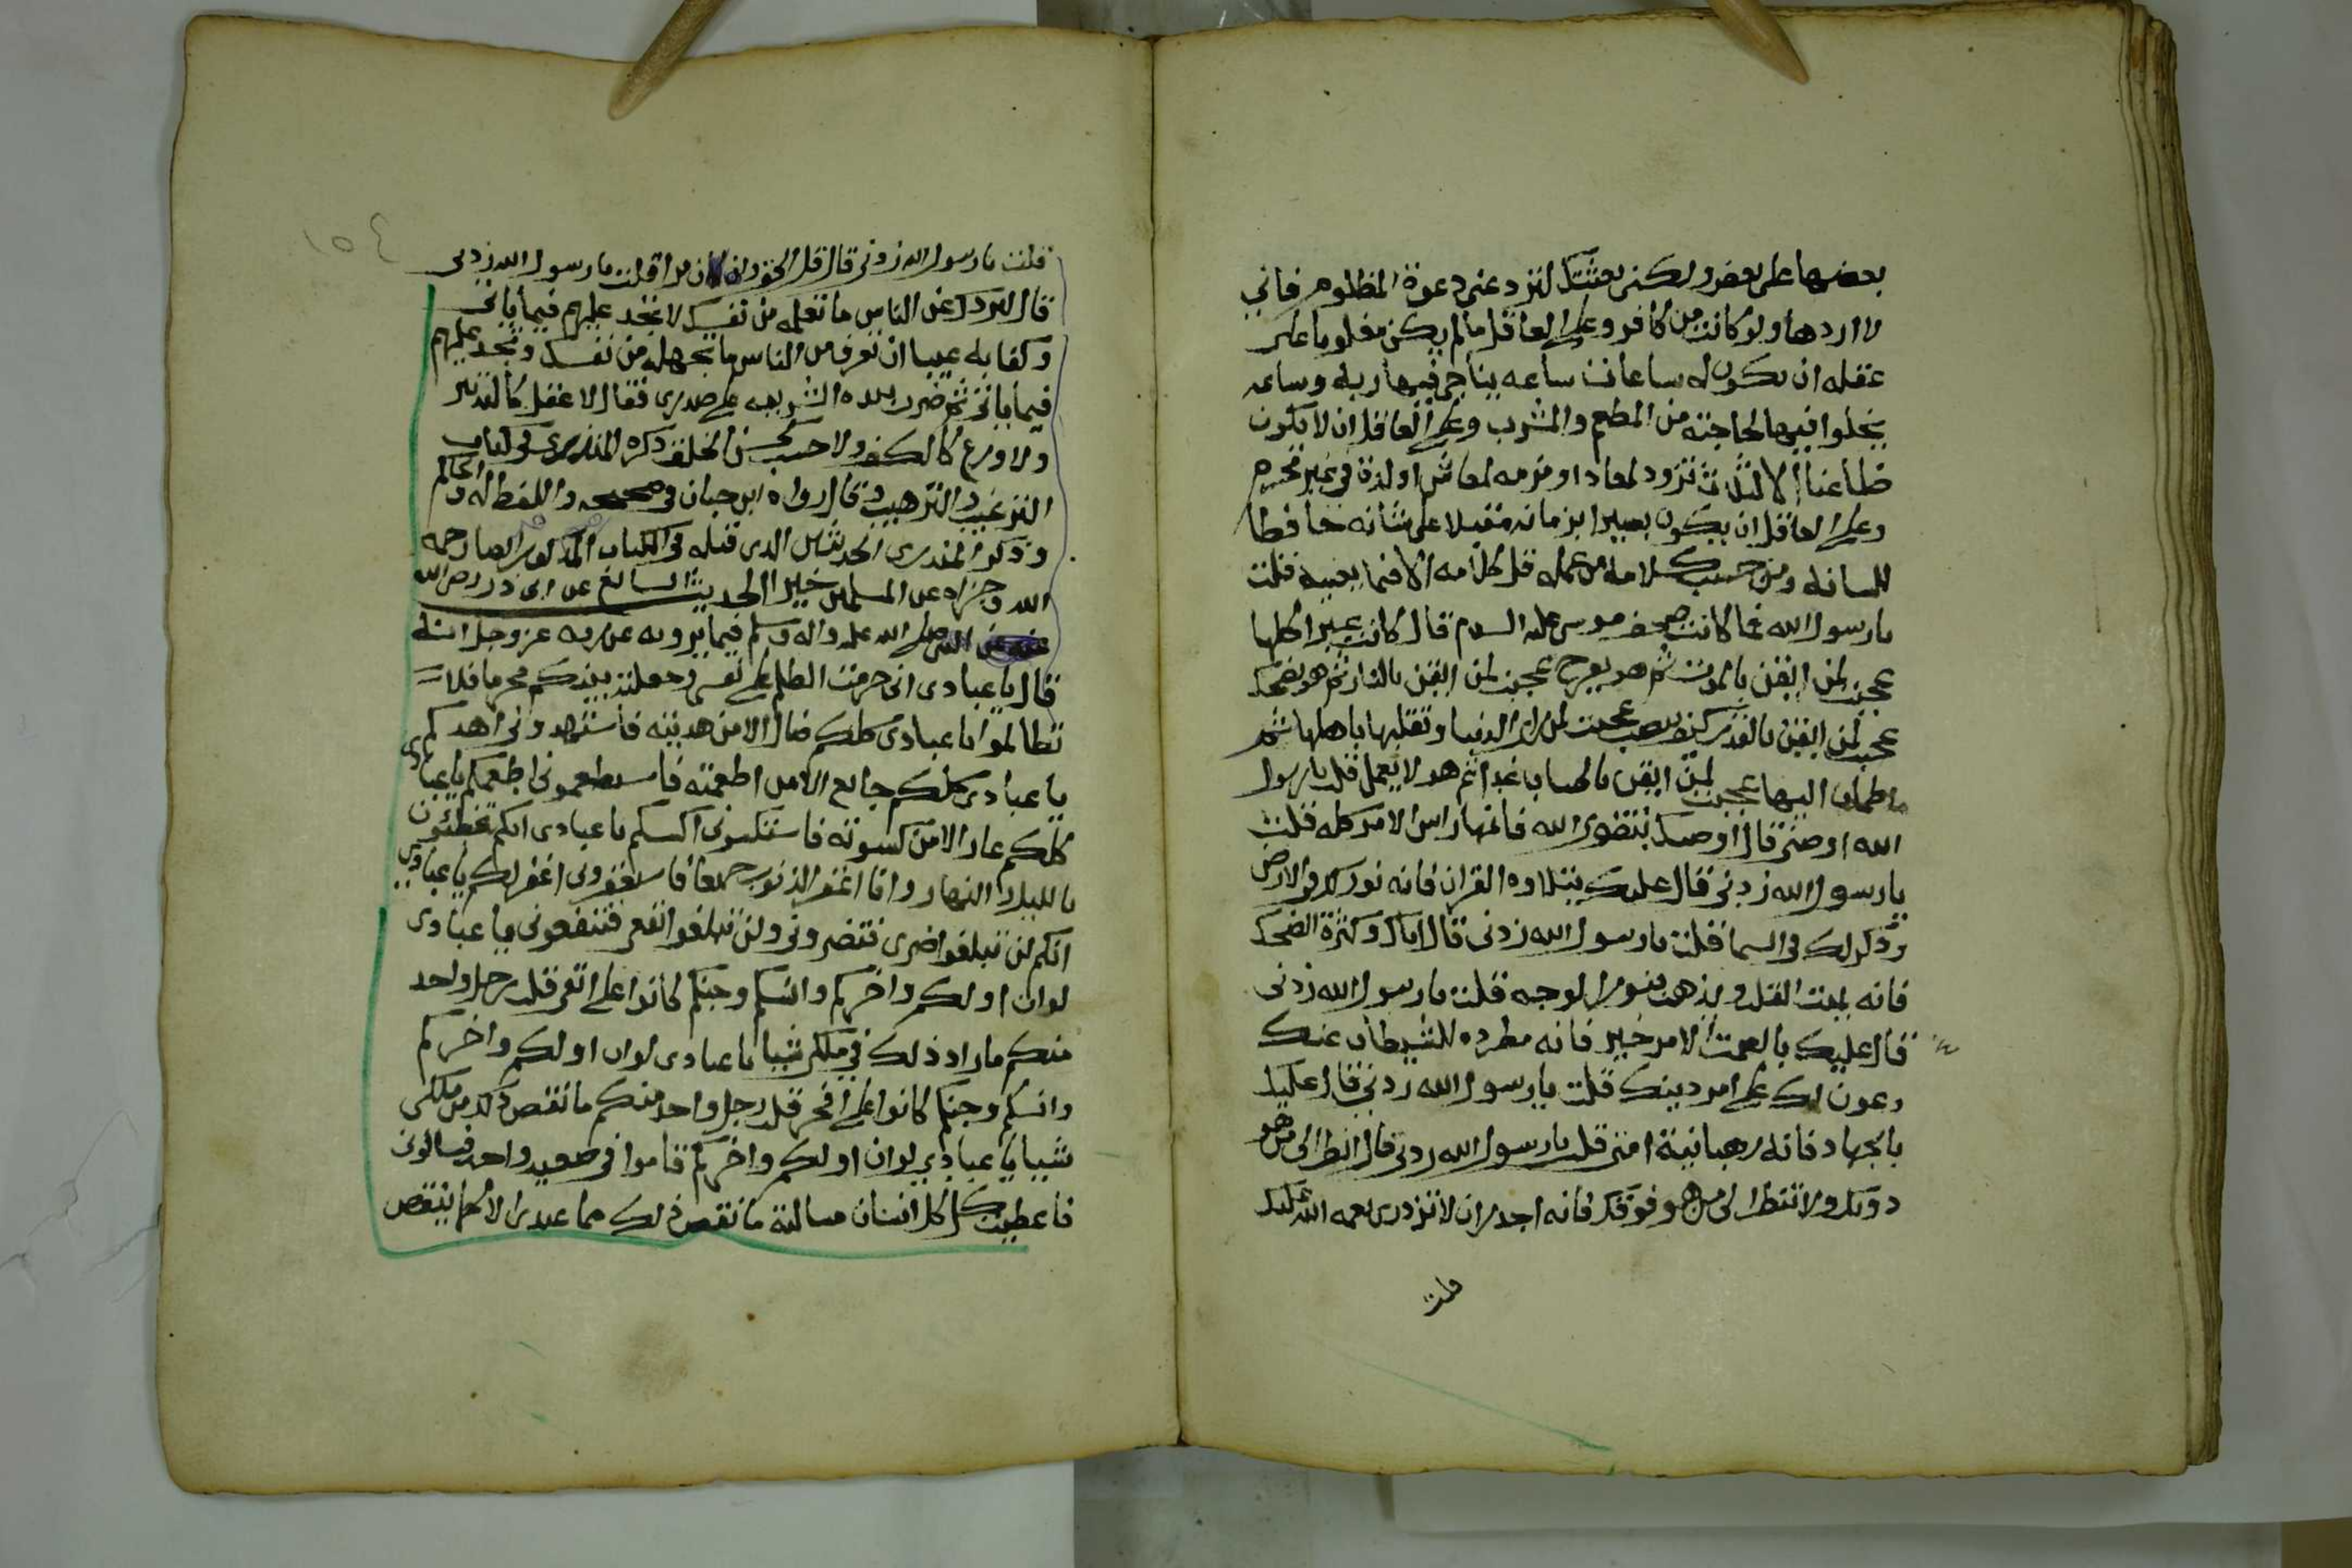 بعضها على بعض ولكني بعثتك لترد عني دعوة المظلوم فاني
لا اردها ولو كانت من كافر وعلى العاقل ما لم يكن مغلوبا على
عقله ان يكون له ساعات ساعه يناجي فيها ربه وساعه
يخلوا فيها لحاجته من المطعم والمشرب وعلى العاقل ان لا يكون
ظاعنا الا لثلاث تزود لمعاد او مرمه لمعاش او لذة في غير محرم
وعلى العاقل ان يكون بصيرا بزمانه مقبلا على شانه حافظا
للسانه ومن حسب كلامه من عمله قل كلامه الا فيما يعنيه قلت
يا رسول الله فما كانت صحف موسى عليه السلام قال كانت عبرا كلها
عجبت لمن ايقن بالموت ثم هو يفرح عجبت لمن ايقن بالنار ثم هو يضحك
عجبت لمن ايقن بالقدر ثم هو ينصب عجبت لمن راى الدنيا وتقلبها باهلها ثم
اطمان اليها عجبت لمن ايقن بالحساب غدا ثم هو لا يعمل قلت يا رسول
الله اوصني قال اوصيك بتقوى الله فانها راس الامر كله قلت
يا رسول الله زدني قال عليك بتلاوه القران فانه نور لك في الارض
وذكر لك في السما قلت يا رسول الله زدني قال اياك وكثرة الضحك
فانه يميت القلب ويذهب بنور الوجه قلت يا رسول الله زدني
قال عليك بالصمت الا من خير فانه مطرده للشيطان عنك
وعون لك على امر دينك قلت يا رسول الله زدني قال عليك
بالجهاد فانه رهبانية امتي قلت يا رسول الله زدني قال انظر الى من هو
دونك ولا تنظر الى من هو فوقك فانه اجدر ان لا تزدري نعمه الله عليك
قلت
١٥٤
قلت يا رسول الله زدني قال قل الحق وان كان مرا قلت يا رسول الله زدني
قال ليردك عن الناس ما تعلمه من نفسك لا تجد عليهم فيما ياتي
وكفا به عيبا ان تعرف من الناس ما تجهله من نفسك وتجد عليهم
فيما ياتي ثم ضرب بيده الشريفه على صدري فقال لا عقل كالتدبير
ولا ورع كالكف ولا حسب كحسن الخلق ذكره المنذري في كتاب
الترغيب والترهيب وقال رواه ابن حبان في صحيحه واللفظ له والحاكم
وذكر المنذري الحديثين الذي قبله في الكتاب المذكور ايضا رحمه
الله وجزاه عن المسلمين خيرا الحديث السابع عن ابي ذر رضي الله
عنه عن النبي صلى الله عليه واله وسلم فيما يرويه عن ربه عز وجل انه
قال يا عبادي اني حرمت الظلم على نفسي وجعلته بينكم محرما فلا
تظالموا يا عبادي كلكم ضال الا من هديته فاستهدوني اهدكم
يا عبادي كلكم جايع الا من اطعمته فاستطعموني اطعمكم يا عبادي
كلكم عار الا من كسوته فاستكسوني اكسكم يا عبادي انكم تخطئون
بالليل والنهار وانا اغفر الذنوب جميعا فاستغفروني اغفر لكم يا عبادي
انكم لن تبلغوا ضري فتضروني ولن تبلغوا نفعي فتنفعوني يا عبادي
لو ان اولكم واخركم وانسكم وجنكم كانوا على اتقى قلب رجل واحد
منكم ما زاد ذلك في ملكي شيا يا عبادي لو ان اولكم واخركم
وانسكم وجنكم كانوا على افجر قلب رجل واحد منكم ما نقص ذلك من ملكي
شيا يا عبادي لو ان اولكم واخركم قاموا في صعيد واحد فسالوني
فاعطيت كل انسان مسالته ما نقص ذلك مما عندي الا كما ينقص